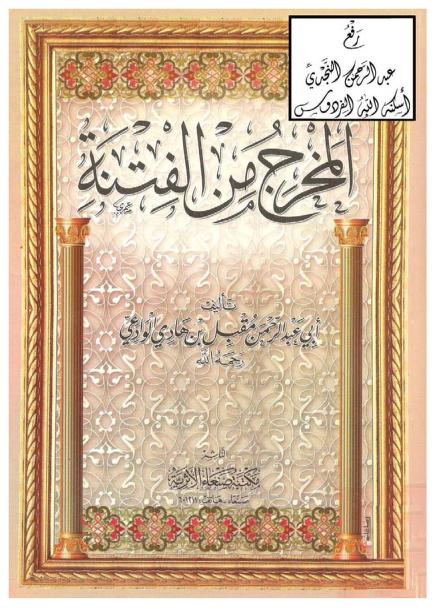 رفع
عبد الرحمن النجدي
أسكنه الله الفردوس
المخرج من الفتنة
تأليف
أبي عبد الرحمن مقبل بن هادي الوادعي
رحمه الله
الناشر
مكتبة صنعاء الأثرية